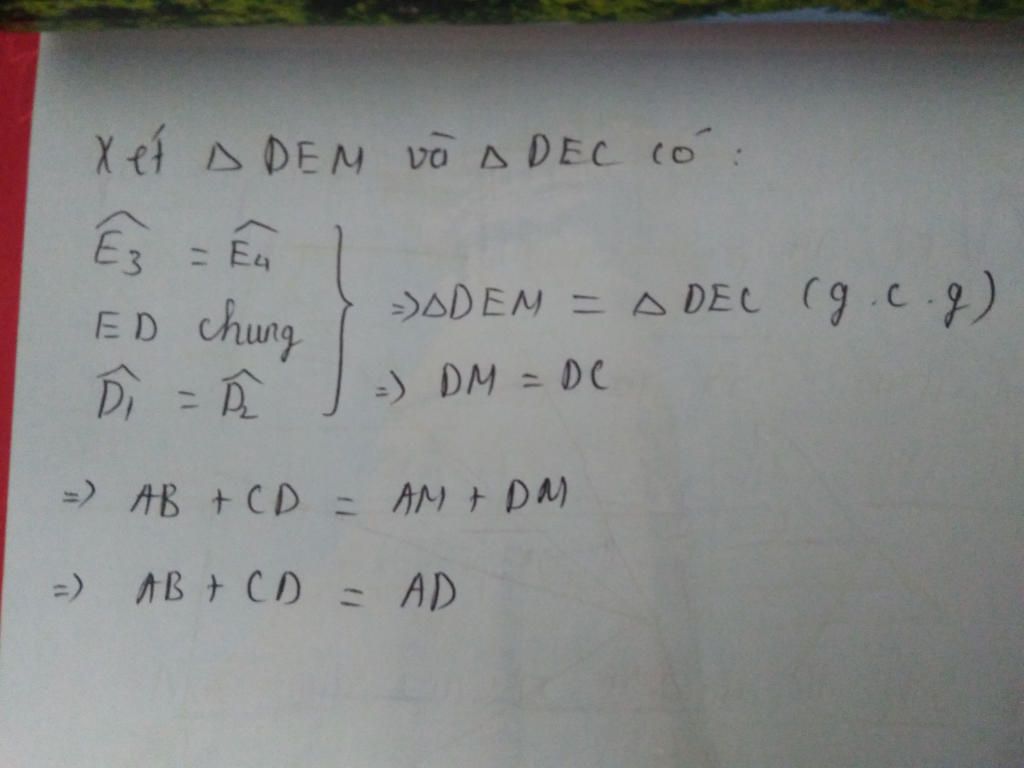 Xét Δ DEM và Δ DEC có :
Ê3 = Ê4
ED chung
D̂1 = D̂2
=> Δ DEM = Δ DEC (g.c.g)
=> DM = DC
=> AB + CD = AM + DM
=> AB + CD = AD